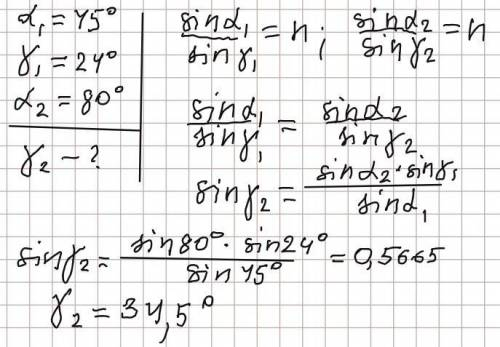 α₁ = 45°
γ₁ = 24°
α₂ = 80°
γ₂ - ?
sinα₁ / sinγ₁ = n ; sinα₂ / sinγ₂ = n
sinα₁ / sinγ₁ = sinα₂ / sinγ₂
sinγ₂ = sinα₂ · sinγ₁ / sinα₁
sinγ₂ = sin80° · sin24° / sin45° = 0,5665
γ₂ = 34,5°